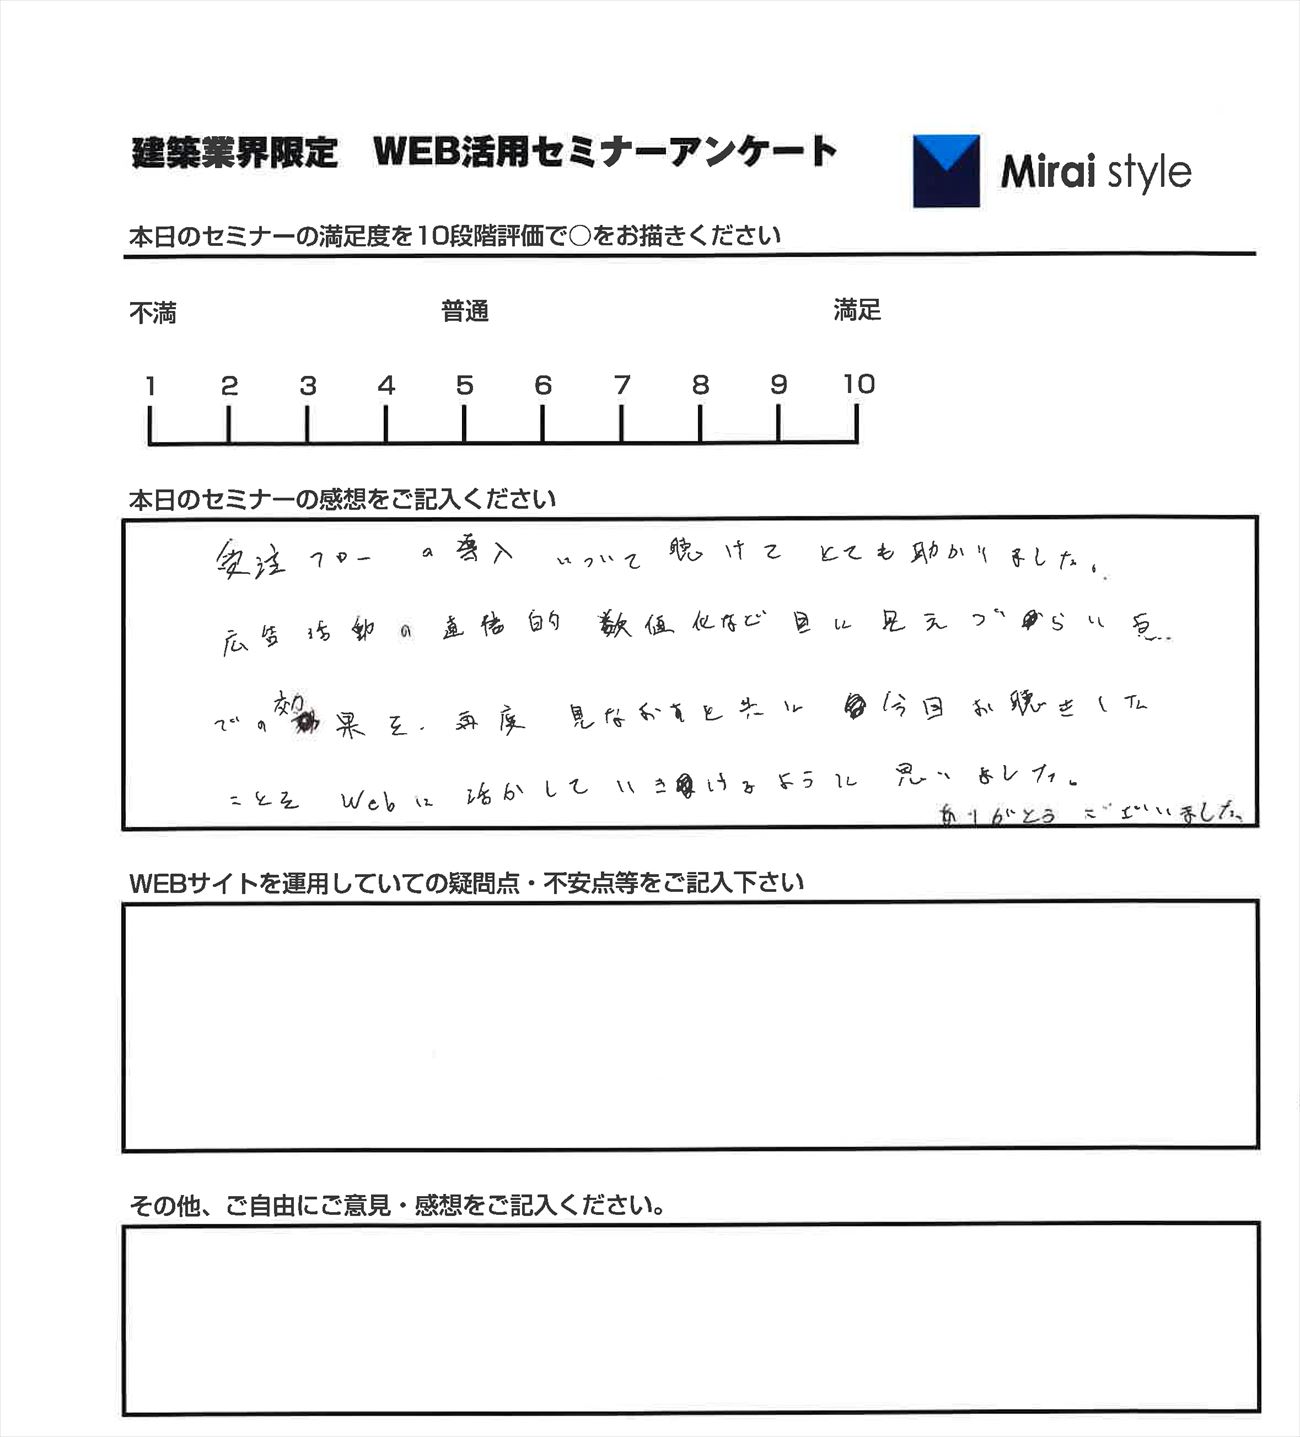 建築業界限定 WEB活用セミナーアンケート
Mirai style
本日のセミナーの満足度を10段階評価で○をお描きください
不満 普通 満足
1 2 3 4 5 6 7 8 9 10
本日のセミナーの感想をご記入ください
受注フローの導入 いついて 聴けてとても助かりました。
広告活動の直接的 数値化など目に見えづらい点
での効果を、再度 見なおすと共に 今回お聴きした
ことを Webに活かしていきけるように 思いました。
ありがとうございいました。
WEBサイトを運用していての疑問点・不安点等をご記入下さい
その他、ご自由にご意見・感想をご記入ください。